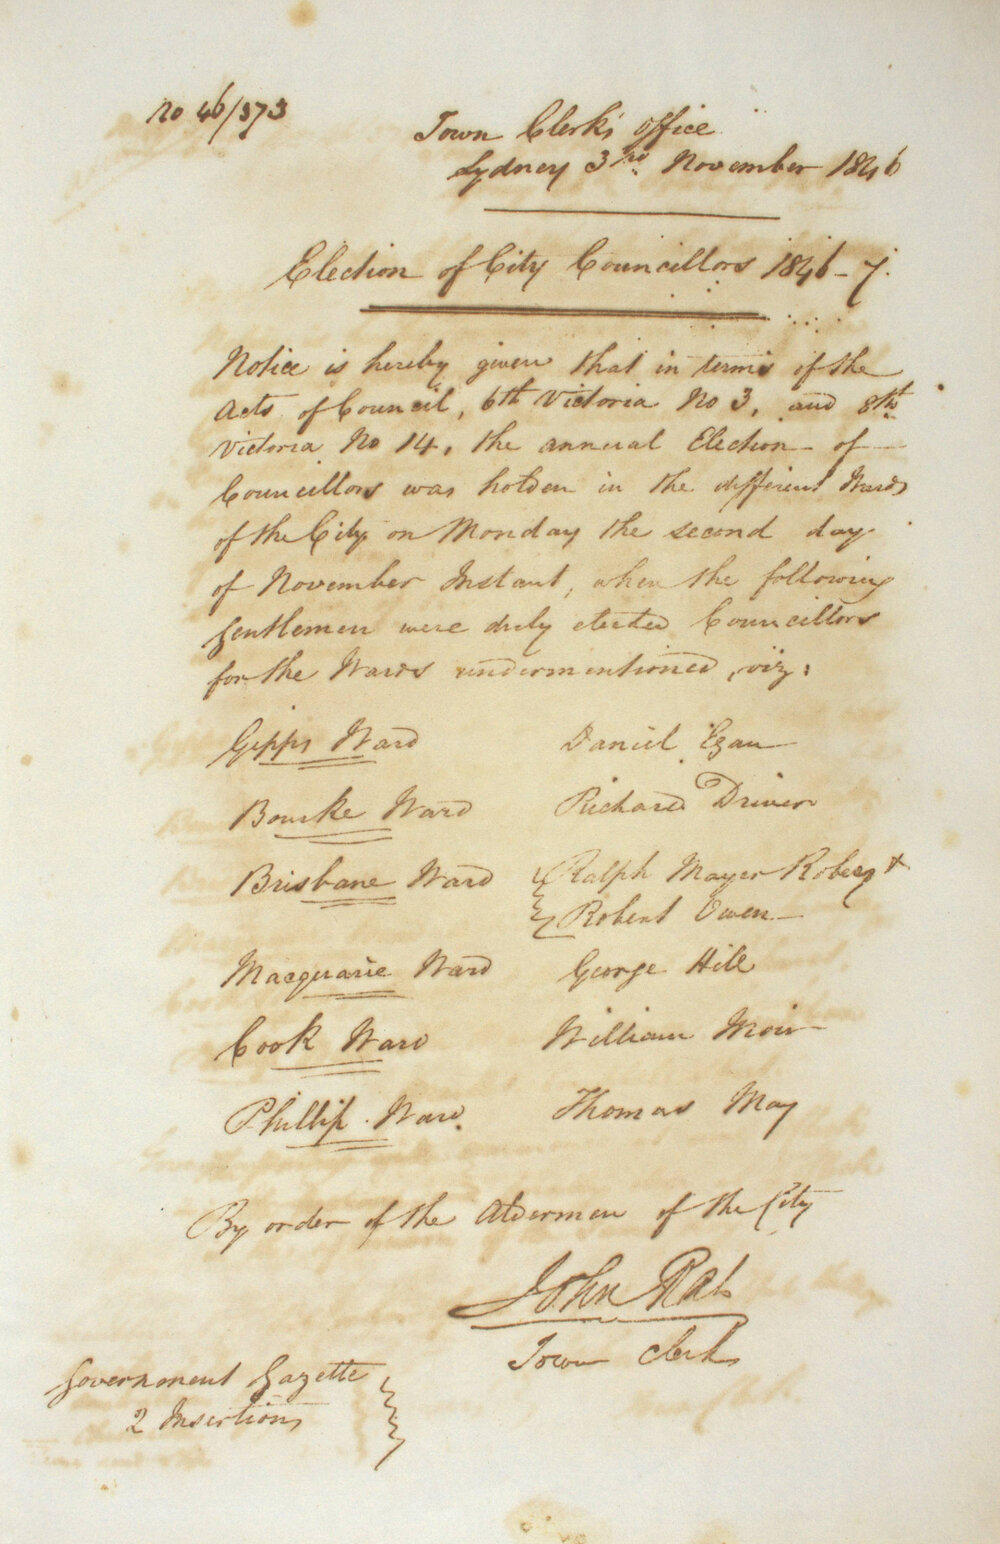 No 46/373
Town Clerk's Office
Sydney 3rd November 1846
Election of City Councillors 1846-7.
Notice is hereby given that in terms of the
Acts of Council, 6th Victoria No 3, and 8th
Victoria No 14, the annual Election of
Councillors was holden in the different Wards
of the City on Monday the second day
of November Instant, when the following
Gentlemen were duly elected Councillors
for the Wards undermentioned, viz:
Gipps Ward Daniel Egan
Bourke Ward Richard Driver
Brisbane Ward Ralph Mayer Robey &
Robert Owen
Macquarie Ward George Hill
Cook Ward William Moir
Phillip Ward. Thomas May
By order of the Aldermen of the City
John Rae
Town Clerk
Government Gazette
2 Insertions